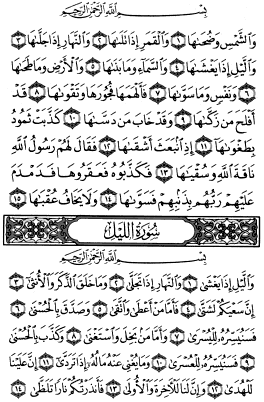 بِسْمِ اللَّهِ الرَّحْمَٰنِ الرَّحِيمِ
وَالشَّمْسِ وَضُحَىٰهَا ١ وَالْقَمَرِ إِذَا تَلَىٰهَا ٢ وَالنَّهَارِ إِذَا جَلَّىٰهَا ٣
وَالَّيْلِ إِذَا يَغْشَىٰهَا ٤ وَالسَّمَآءِ وَمَا بَنَىٰهَا ٥ وَالْأَرْضِ وَمَا طَحَىٰهَا
٦ وَنَفْسٍ وَمَا سَوَّىٰهَا ٧ فَأَلْهَمَهَا فُجُورَهَا وَتَقْوَىٰهَا ٨ قَدْ
أَفْلَحَ مَن زَكَّىٰهَا ٩ وَقَدْ خَابَ مَن دَسَّىٰهَا ١٠ كَذَّبَتْ ثَمُودُ
بِطَغْوَىٰهَا ١١ إِذِ انۢبَعَثَ أَشْقَىٰهَا ١٢ فَقَالَ لَهُمْ رَسُولُ اللَّهِ
نَاقَةَ اللَّهِ وَسُقْيَىٰهَا ١٣ فَكَذَّبُوهُ فَعَقَرُوهَا فَدَمْدَمَ
عَلَيْهِمْ رَبُّهُم بِذَنۢبِهِمْ فَسَوَّىٰهَا ١٤ وَلَا يَخَافُ عُقْبَىٰهَا ١٥
سُورَةُ اللَّيْلِ
بِسْمِ اللَّهِ الرَّحْمَٰنِ الرَّحِيمِ
وَالَّيْلِ إِذَا يَغْشَىٰ ١ وَالنَّهَارِ إِذَا تَجَلَّىٰ ٢ وَمَا خَلَقَ الذَّكَرَ وَالْأُنثَىٰٓ ٣
إِنَّ سَعْيَكُمْ لَشَتَّىٰ ٤ فَأَمَّا مَنْ أَعْطَىٰ وَاتَّقَىٰ ٥ وَصَدَّقَ بِالْحُسْنَىٰ ٦
فَسَنُيَسِّرُهُۥ لِلْيُسْرَىٰ ٧ وَأَمَّا مَنۢ بَخِلَ وَاسْتَغْنَىٰ ٨ وَكَذَّبَ بِالْحُسْنَىٰ
٩ فَسَنُيَسِّرُهُۥ لِلْعُسْرَىٰ ١٠ وَمَا يُغْنِى عَنْهُ مَالُهُۥٓ إِذَا تَرَدَّىٰٓ ١١ إِنَّ عَلَيْنَا
لَلْهُدَىٰ ١٢ وَإِنَّ لَنَا لَلْآخِرَةَ وَالْأُولَىٰ ١٣ فَأَنذَرْتُكُمْ نَارًا تَلَظَّىٰ ١٤